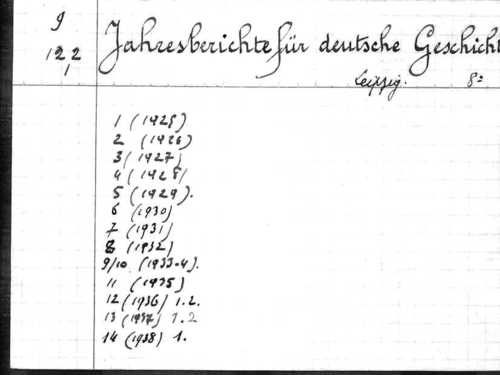 9
122
1
Jahresberichte für deutsche Geschicht
Leipzig. 8°
1 (1925)
2 (1926)
3 (1927)
4 (1928)
5 (1929).
6 (1930)
7 (1931)
8 (1932)
9/10 (1933-4).
11 (1935)
12 (1936) 1.2.
13 (1937) 1.2
14 (1938) 1.